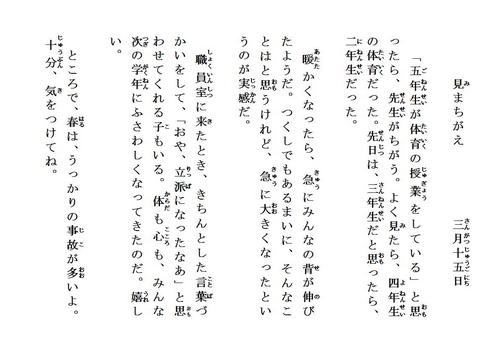 見まちがえ　　　三月十五日
「五年生が体育の授業をしている」と思
ったら、先生がちがう。よく見たら、四年生
の体育だった。先日は、三年生だと思ったら、
二年生だった。
暖かくなったら、急にみんなの背が伸び
たようだ。つくしでもあるまいに、そんなこ
とはと思うけれど、急に大きくなったとい
うのが実感だ。
職員室に来たとき、きちんとした言葉づ
かいをして、「おや、立派になったなあ」と思
わせてくれる子もいる。体も心も、みんな
次の学年にふさわしくなってきたのだ。嬉し
い。
ところで、春は、うっかりの事故が多いよ。
十分、気をつけてね。